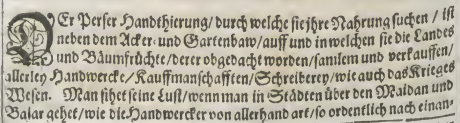 DEr Perser Handthierung / durch welche sie jhre Nahrung suchen / ist
neben dem Acker- und Gartenbaw / auff und in welchen sie die Landes
und Bäumfrüchte / derer obgedacht worden / samlem und verkauffen /
allerley Handwercke / Kauffmanschafften / Schreiberey / wie auch das Krieges
Wesen. Man sihet seine Lust / wenn man in Städten über den Maidan und
Basar gehet / wie die Handwercker von allerhand art / so ordentlich nach einan-